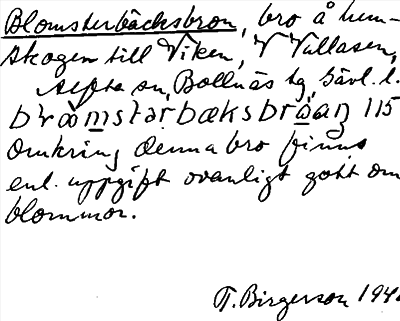 Blomsterbäcksbron, bro å hem-
skogen till Viken, V Vallasen,
Alfta sn, Bollnäs tg, Gävl. l.
Omkring denna bro finns
enl. uppgift ovanligt gott om
blommor.
T. Birgerson 194